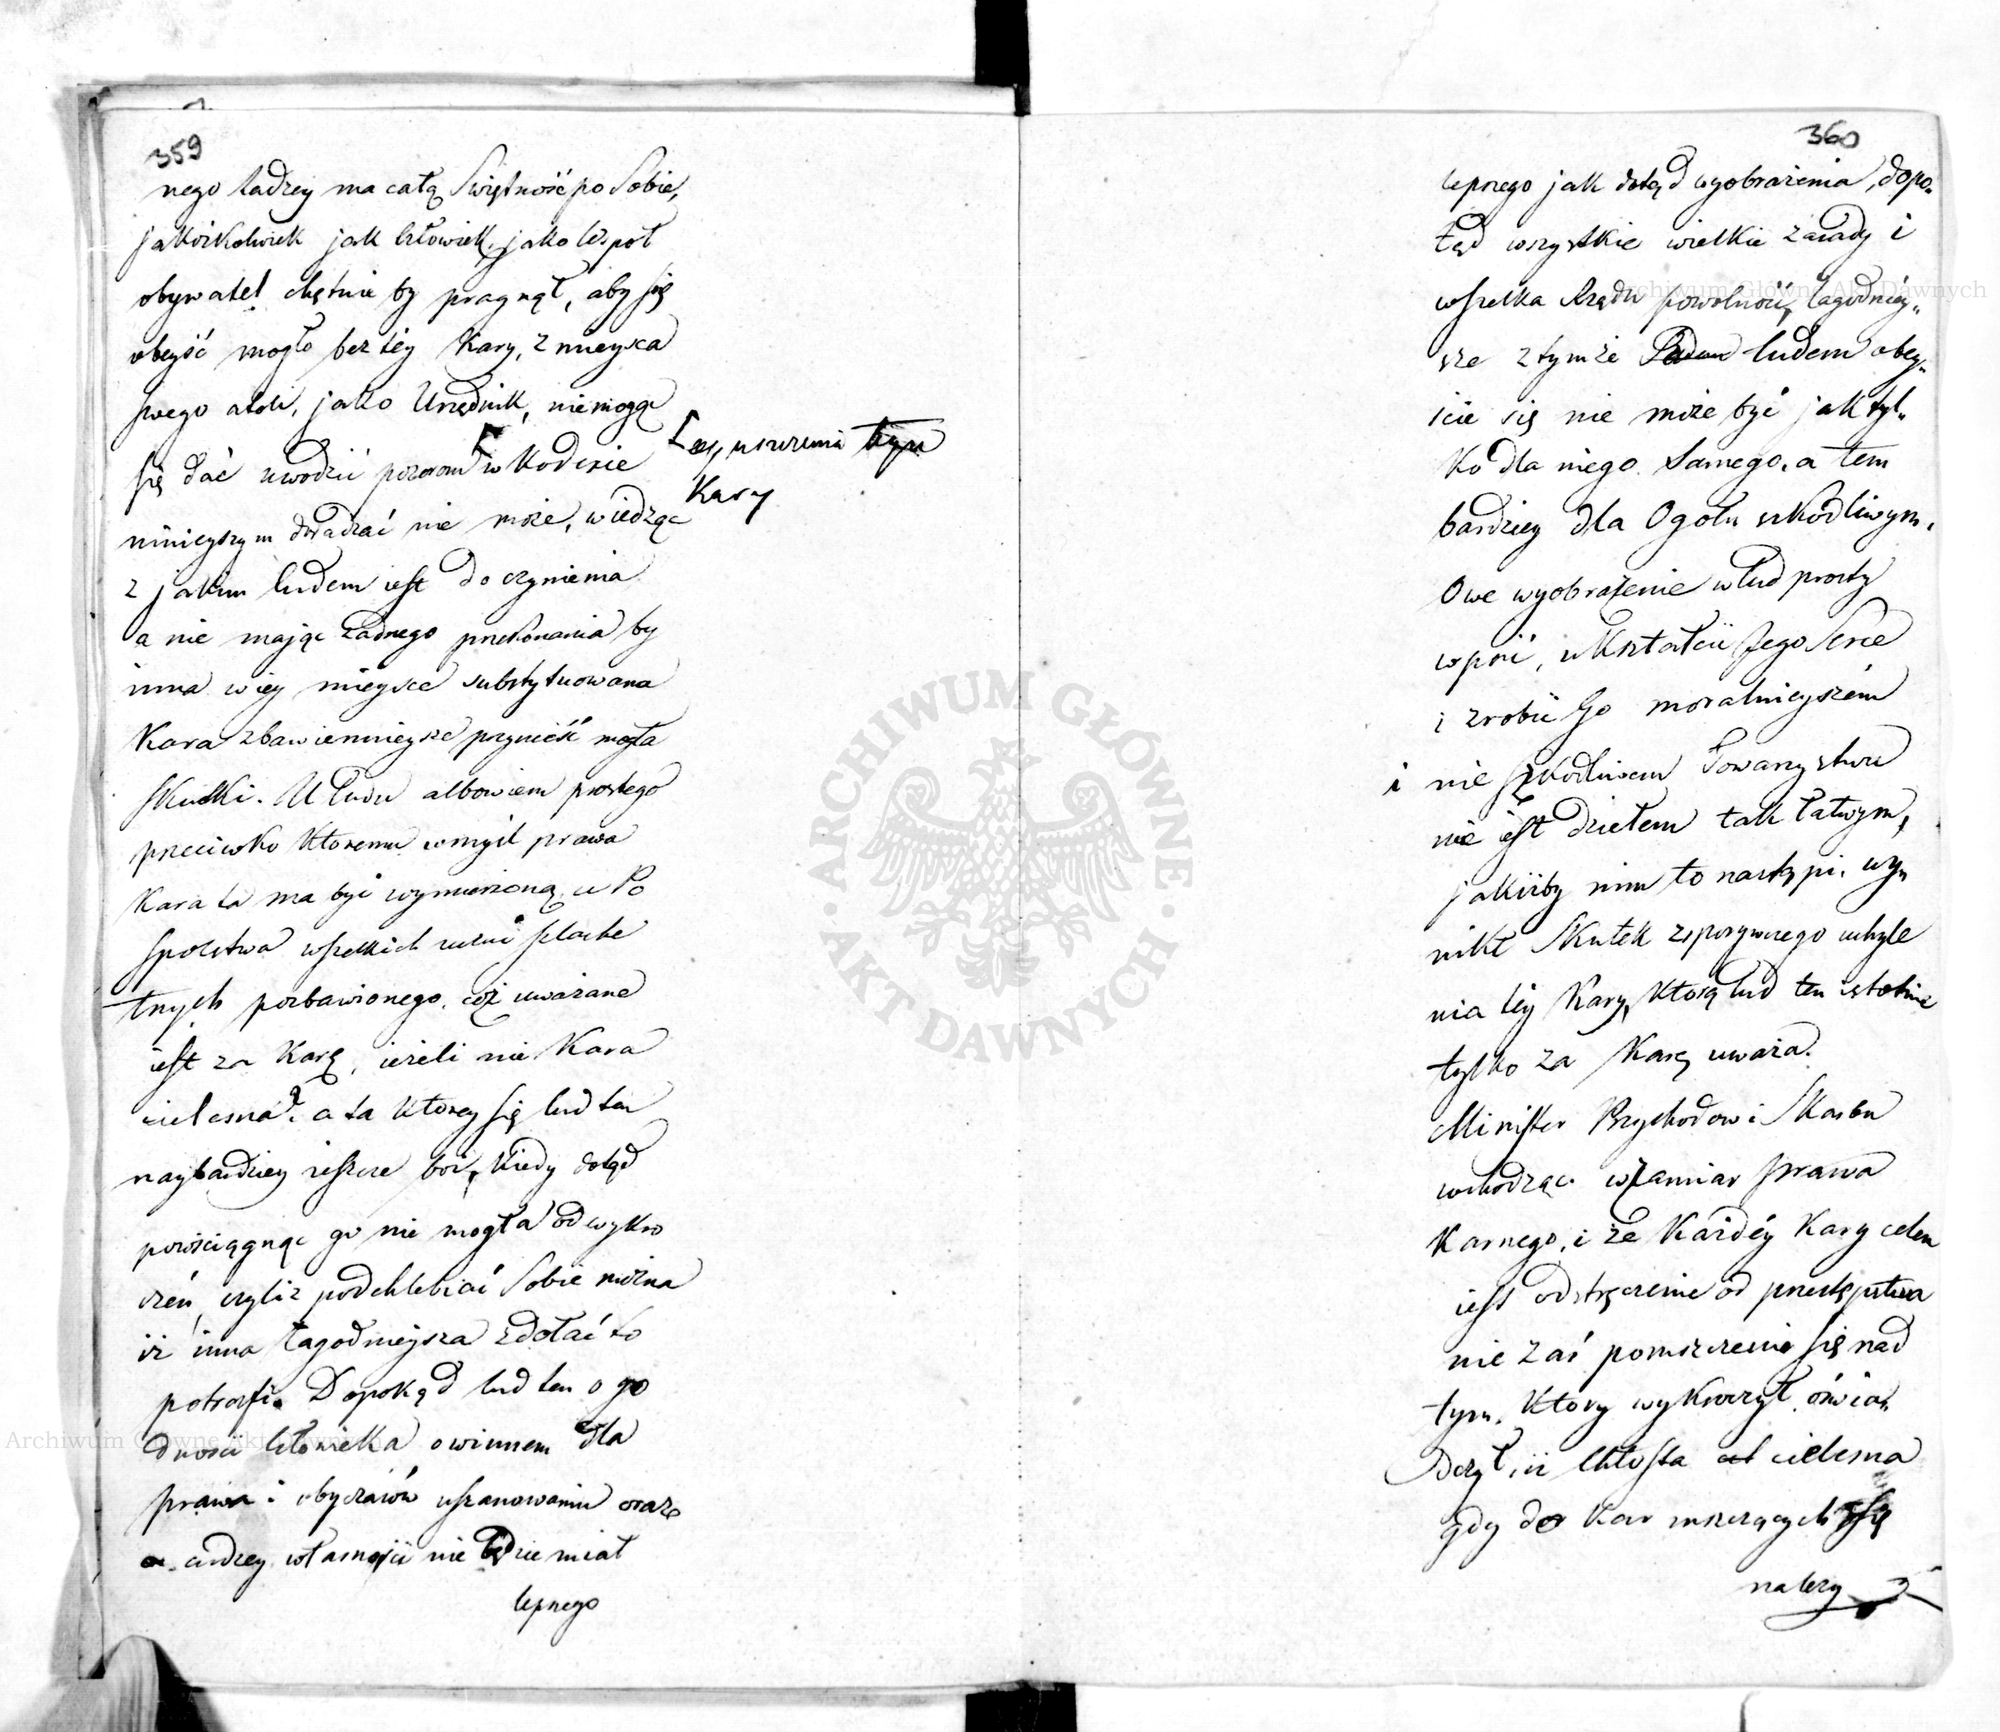 359
nego ludzey ma całą Świętność po Sobie,
jakożkolwiek jak Człowiek, jako Współ
obywatel chętnie by pragnął, aby się
obeyść mogło bez tey Kary, z mieysca
swego atoli, jako Urzędnik, nie mogąc
się dać uwodzić pozorom [ w Kodexie
[ opuszczenia tego
Kary
ninieyszym doradzać nie może, wiedząc
z jakim ludem jest do czynienia
a nie mając żadnego przekonania by
inna w iey mieysce substytuowana
Kara zbawiennieysze przynieść mogła
skutki. U ludu albowiem prostego
przeciwko któremu w myśl prawa
Kara ta ma być wymierzoną, u Po
spolstwa wszelkich uczuć szlache
tnych pozbawionego, coż uważane
jest za Karę, ieżeli nie Kara
cielesna? a ta ktorey się lud ten
naybardziey ieszcze boi, Kiedy dotąd
powściągnąć go nie mogła od wykro
czeń, czyliż podchlebiać Sobie można
iż inna łagodnieysza zdołać to
potrafi. Dopokąd lud ten o go
dności Człowieka o winnem dla
prawa i obyczaiów uszanowaniu oraz
cudzey własności nie będzie miał
lepszego
360
lepszego jak dotąd wyobrażenia, dopo„
tąd wszystkie wielkie zasady i
wszelka Rządu powolność, łagodniey„
sze z tymże ludem obey„
ście się nie może być jak tyl„
ko dla niego Samego, a tem
bardziey dla Ogołu szkodliwym.
Owe wyobrażenie w lud prosty
wpoić, ukształcić Jego Serce
i zrobić Go moralnieyszém
i nie szkodliwem Towarzystwu
nie jest dziełem tak łatwym,
jakiżby nim to nastąpi, wy„
nikł Skutek z spiesznego uchyle
nia tey Kary, ktorą lud ten istotnie
tylko za Karę uważa.
Minister Przychodow i Skarbu
wchodząc w zamiar prawa
Karnego, i że Każdéy Kary celem
jest odstręczenie od przestępstwa
nie zaś pomszczenie się nad
tym, Ktory wykroczył, oświad„
dczył, iż Chłosta cielesna
gdy do Kar mszczących się
należy